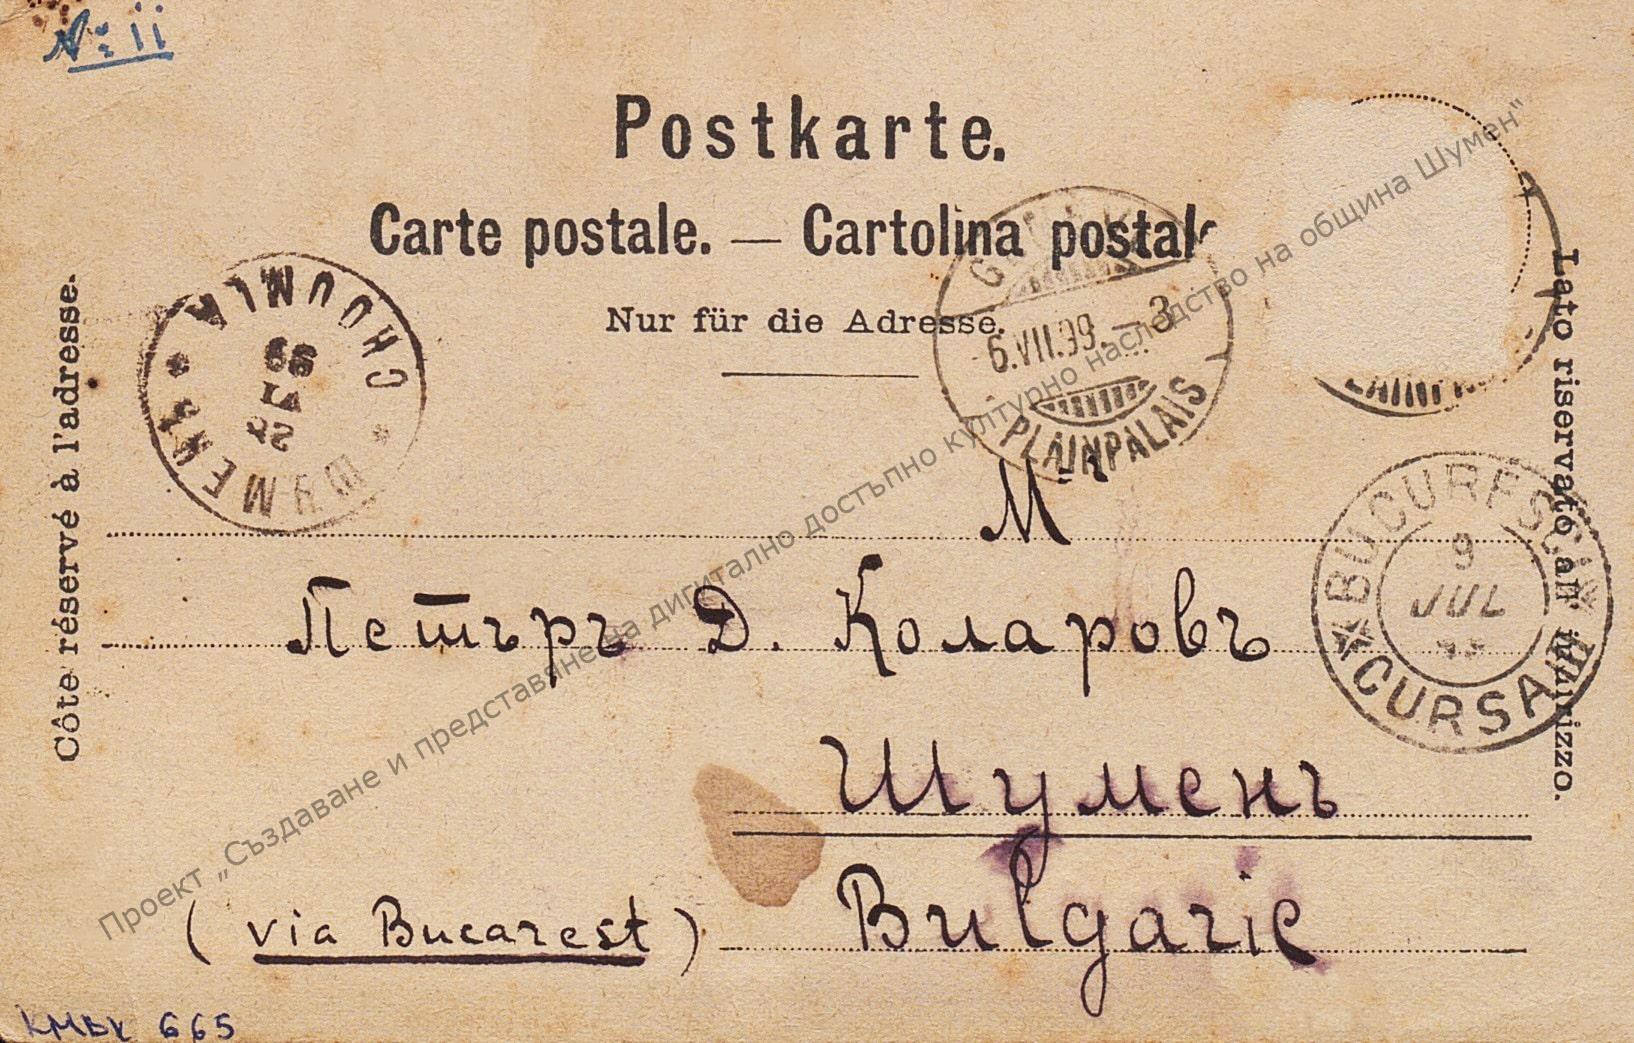 № 11
Postkarte.
Carte postale. — Cartolina postale
Nur für die Adresse.
Côté réservé à l'adresse.
Lato riservato all' indirizzo.
CHOUMLA
ШУМЕНЪ
99
6.VII.99.–3
PLAINPALAIS
BUCURESCI
9
JUL
CURSA III
Mr
Петъръ Д. Коларовъ
Шуменъ
Bulgarie
(via Bucarest)
КМБК 665
Проект „Създаване и представяне на дигитално достъпно културно наследство на община Шумен"